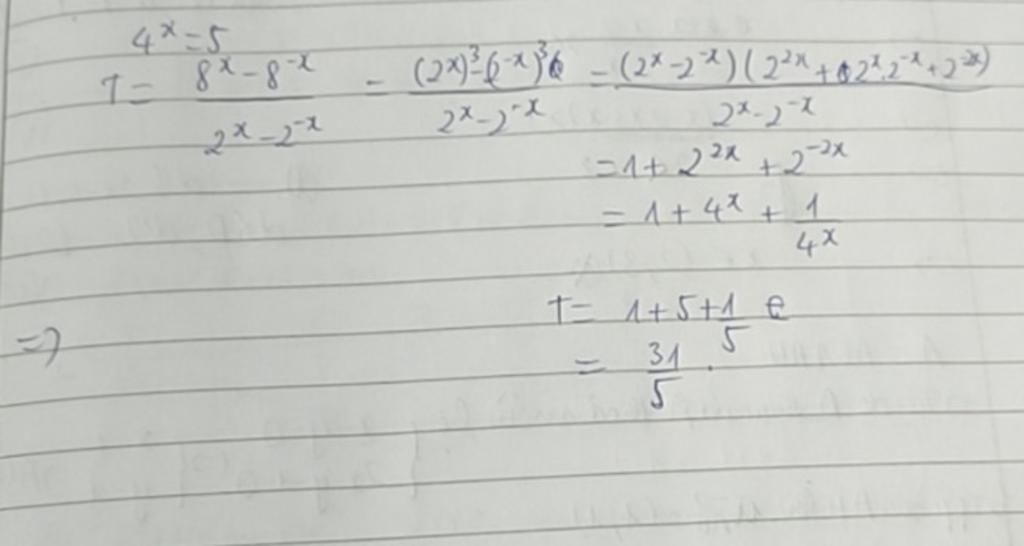 4^x = 5
T = \frac{8^x - 8^{-x}}{2^x - 2^{-x}} = \frac{(2^x)^3 - (2^{-x})^3}{2^x - 2^{-x}} = \frac{(2^x - 2^{-x})(2^{2x} + 2^x . 2^{-x} + 2^{-2x})}{2^x - 2^{-x}}
= 1 + 2^{2x} + 2^{-2x}
= 1 + 4^x + \frac{1}{4^x}
=> T = 1 + 5 + \frac{1}{5}
= \frac{31}{5} .